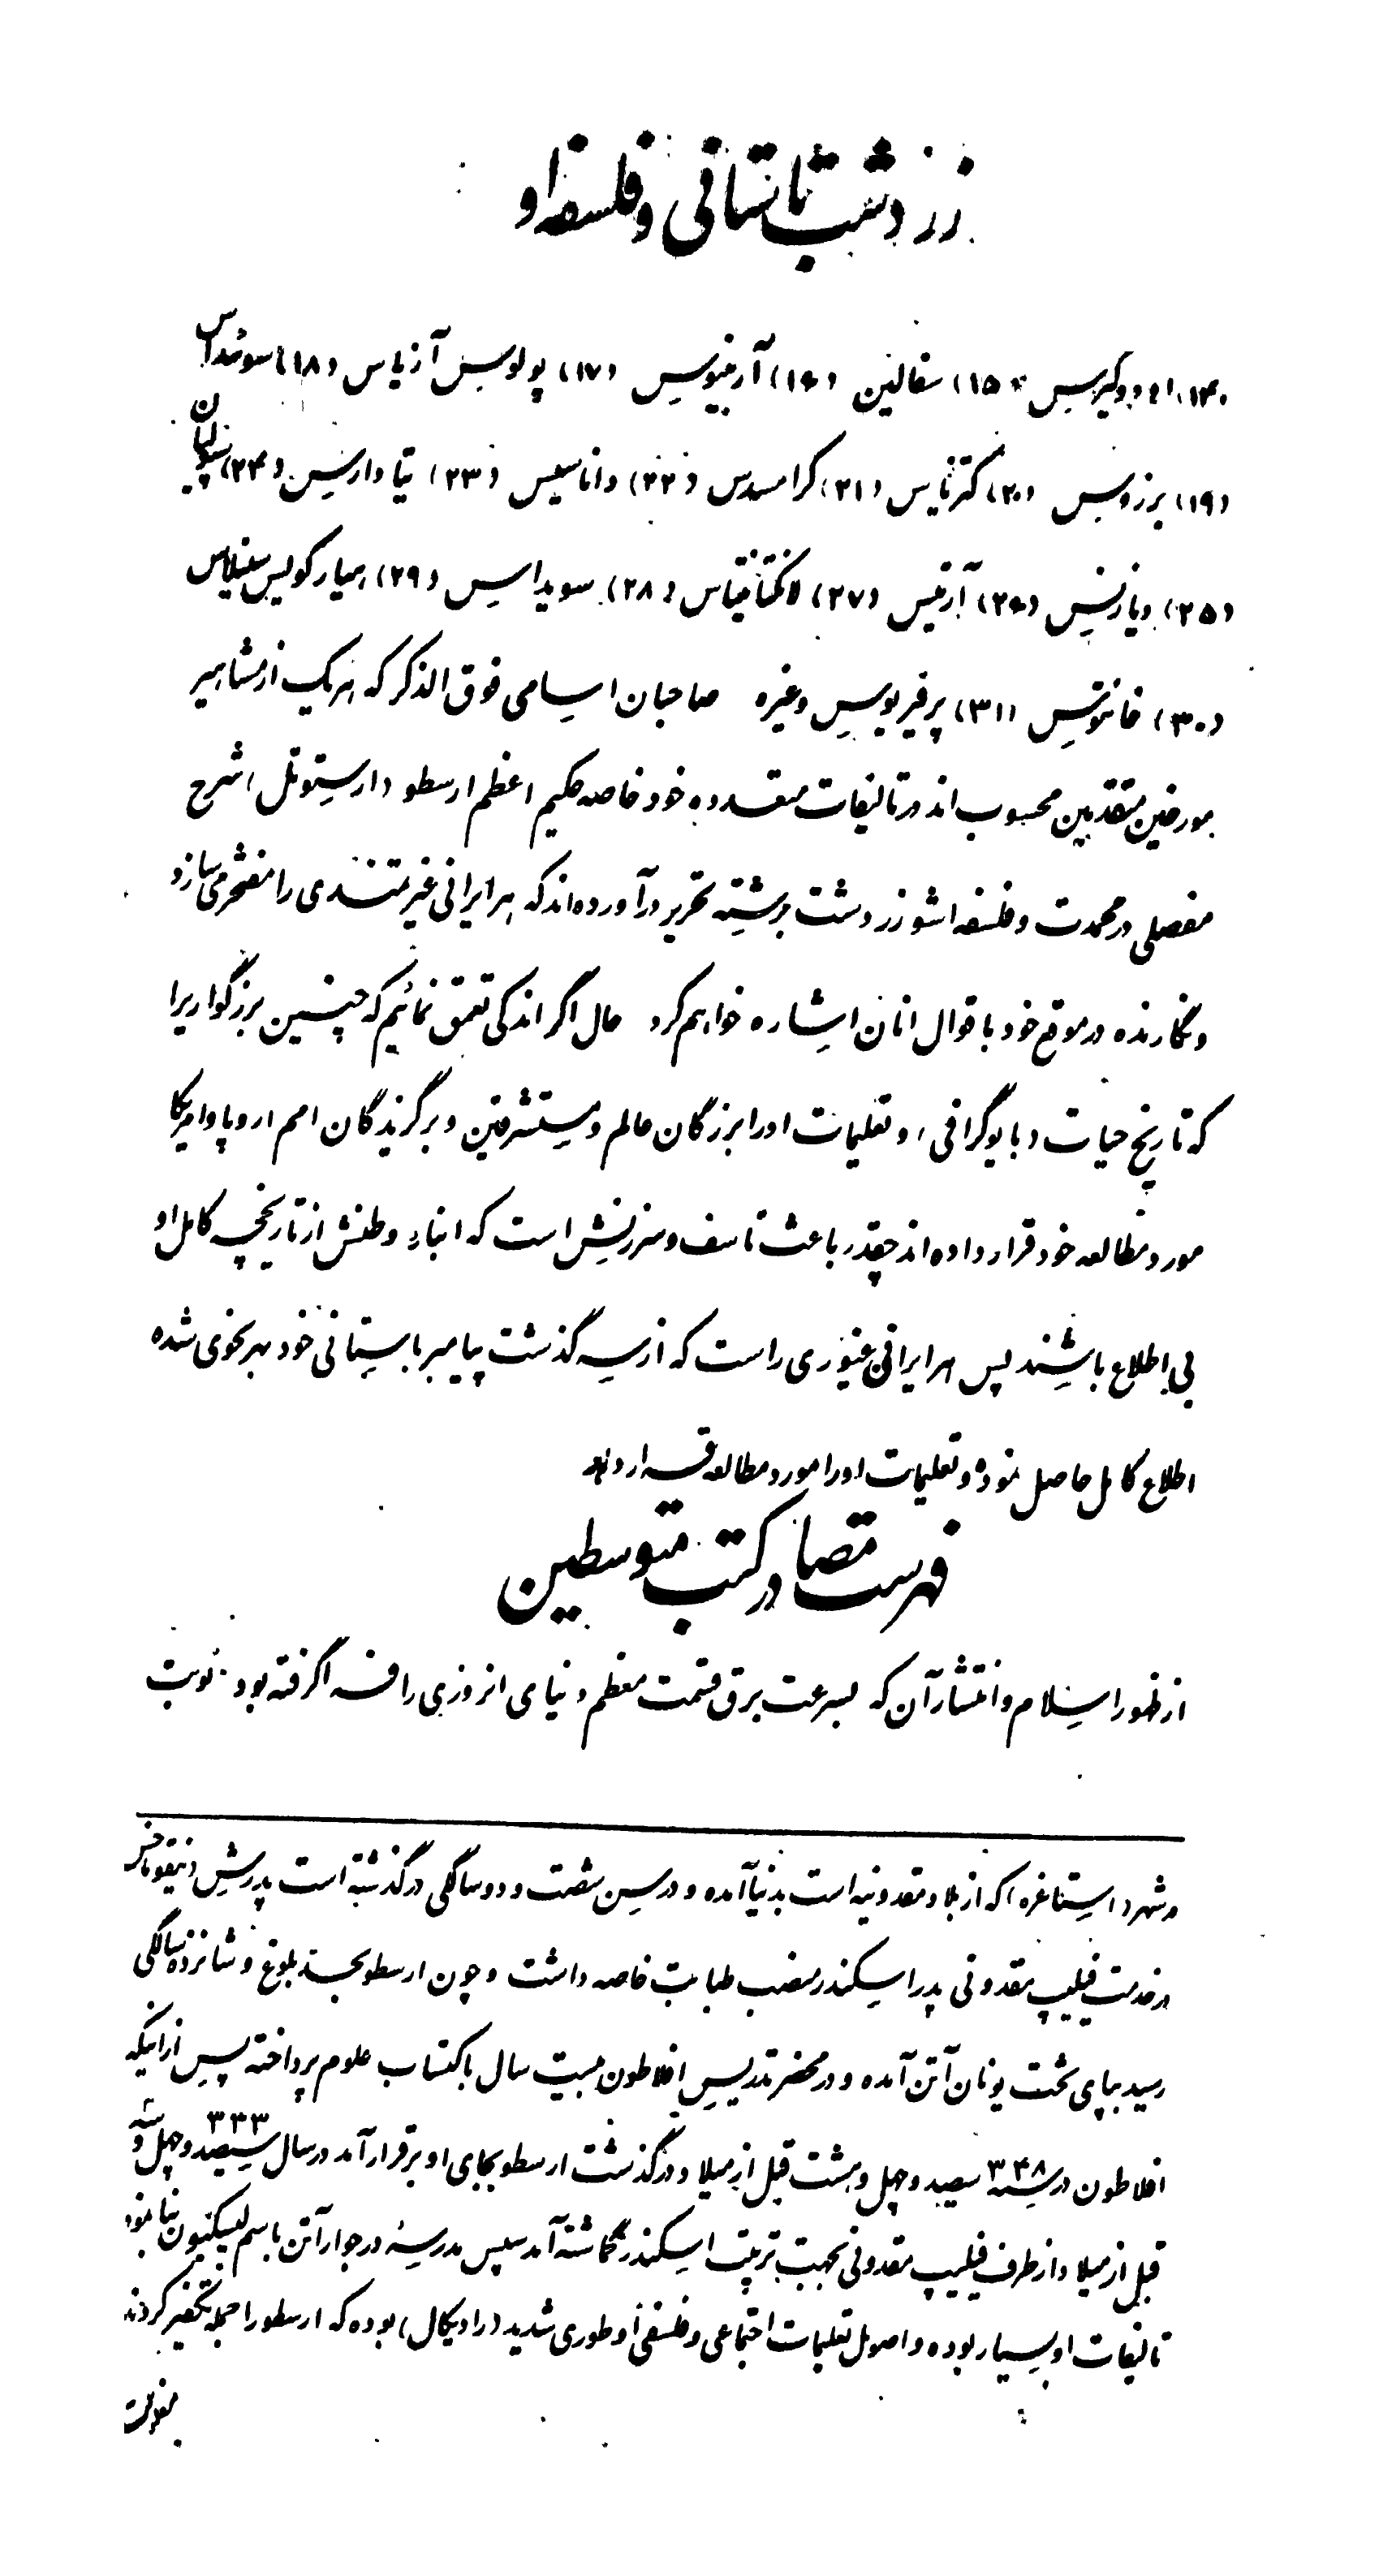 زردشت باستانی و فلسفه او
(۱۴) اودوکیرس (۱۵) سفالین (۱۶) آرمنیوس (۱۷) پولوس آزیاس (۱۸) سوئداس
(۱۹) برزوس (۲۰) کترنایس (۲۱) کرامسدس (۲۲) داناسیس (۲۳) تیاداریس (۲۴)
(۲۵) (۲۶) آرنیس (۲۷) لاکتانتیاس (۲۸) سویداسیس (۲۹)
(۳۰) خانتوس (۳۱) پرفیریوس وغیره صاحبان اسامی فوق الذکر که هریک از مشاهیر
مورخین متقدمین محسوب اند در تالیفات متعدده خود خاصه حکیم اعظم ارسطو (ارستوتل) شرح
مفصلی در محمدت و فلسفه اشو زردشت برشته تحریر درآورده‌اند که هر ایرانی غیرتمندی را مفتخر می‌سازد
و نگارنده در موقع خود باقوال انان اشاره خواهم کرد حال اگر اندکی تعمق نمائیم که چنین بزرگواریرا
که تاریخ حیات (بایوگرافی) و تعلیمات اورا بزرگان عالم و مستشرقین و برگزیدگان امم اروپا و امریکا
مورد مطالعه خود قرار داده اند چقدر باعث تاسف و سرزنش است که ابناء وطنش از تاریخچه کامل او
بی اطلاع باشند پس هر ایرانی غیوری راست که از سرگذشت پیامبر باستانی خود بهر نحوی شده
اطلاع کامل حاصل نموده و تعلیمات اورا مورد مطالعه قرار دهد
فهرست مقصا در کتب متوسطین
از ظهور اسلام و انتشار آن که بسرعت برق قسمت معظم دنیای انروزی را فرا گرفته بود نوبت
در شهر (استاغره) که از بلاد مقدونیه است بدنیا آمده و در سن شصت و دو سالگی درگذشته است پدرش (نیقوماخس)
در خدمت فیلیپ مقدونی پدر اسکندر منصب طبابت خاصه داشت و چون ارسطو بحد بلوغ و شانزده سالگی
رسید بپای تخت یونان آتن آمده و در محضر تدریس افلاطون بیست سال باکتساب علوم پرداخته پس از اینکه
افلاطون در سنه ۳۴۸ سیصد و چهل و هشت قبل از میلاد درگذشت ارسطو بجای او برقرار آمد در سال ۳۴۳ سیصد و چهل و سه
قبل از میلاد از طرف فیلیپ مقدونی بجهت تربیت اسکندر گماشته آمد سپس مدرسهٔ در جوار آتن باسم لیسکیون بنا نمود
تالیفات او بسیار بوده و اصول تعلیمات اجتماعی و فلسفی او طوری شدید (رادیکال) بوده که ارسطو را جمله تکفیر کردند